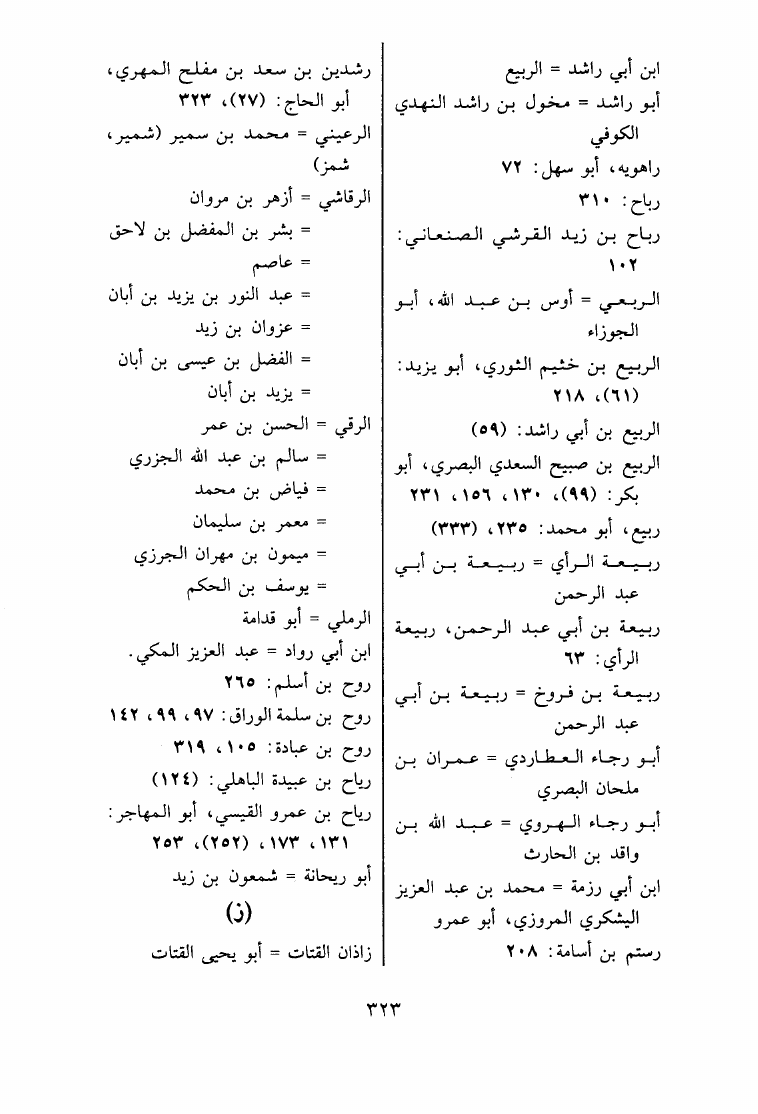 ابن أبي راشد = الربيع
أبو راشد = مخول بن راشد النهدي
الكوفي
راهويه، أبو سهل: ٧٢
رباح: ٣١٠
رباح بن زيد القرشي الصنعاني:
١٠٢
الربعي = أوس بن عبد الله، أبو
الجوزاء
الربيع بن خثيم الثوري، أبو يزيد:
(٦١)، ٢١٨
الربيع بن أبي راشد: (٥٩)
الربيع بن صبيح السعدي البصري، أبو
بكر: (٩٩)، ١٣٠، ١٥٦، ٢٣١
ربيع، أبو محمد: ٢٣٥، (٣٣٣)
ربيعة الرأي = ربيعة بن أبي
عبد الرحمن
ربيعة بن أبي عبد الرحمن، ربيعة
الرأي: ٦٣
ربيعة بن فروخ = ربيعة بن أبي
عبد الرحمن
أبو رجاء العطاردي = عمران بن
ملحان البصري
أبو رجاء الهروي = عبد الله بن
واقد بن الحارث
ابن أبي رزمة = محمد بن عبد العزيز
اليشكري المروزي، أبو عمرو
رستم بن أسامة: ٢٠٨
رشدين بن سعد بن مفلح المهري،
أبو الحاج: (٢٧)، ٣٢٣
الرعيني = محمد بن سمير (شمير،
شمز)
الرقاشي = أزهر بن مروان
= بشر بن المفضل بن لاحق
= عاصم
= عبد النور بن يزيد بن أبان
= عزوان بن زيد
= الفضل بن عيسى بن أبان
= يزيد بن أبان
الرقي = الحسن بن عمر
= سالم بن عبد الله الجزري
= فياض بن محمد
= معمر بن سليمان
= ميمون بن مهران الجرزي
= يوسف بن الحكم
الرملي = أبو قدامة
ابن أبي رواد = عبد العزيز المكي.
روح بن أسلم: ٢٦٥
روح بن سلمة الوراق: ٩٧، ٩٩، ١٤٢
روح بن عبادة: ١٠٥، ٣١٩
رياح بن عبيدة الباهلي: (١٢٤)
رياح بن عمرو القيسي، أبو المهاجر:
١٣١، ١٧٣، (٢٥٢)، ٢٥٣
أبو ريحانة = شمعون بن زيد
(ز)
زاذان القتات = أبو يحيى القتات
٣٢٣